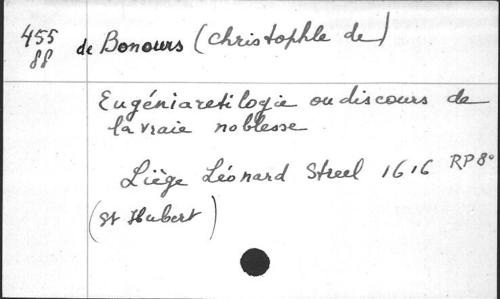 455 de Bonours (Christophle de)
88
Eugéniaretilogie ou discours de
la vraie noblesse
Liège Léonard Streel 1616 RP8°
(St Hubert)